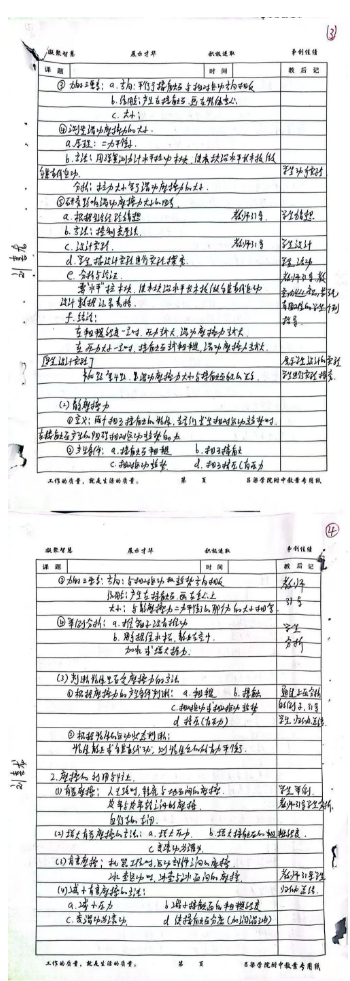 ③
凝聚智慧 展示才华 积极进取 争创佳绩
课题 时间 教后记
③ 力的三要素：a. 方向：平行于接触面 与相对运动方向相反
b. 作用点：产生在接触面 画在物体重心
c. 大小：
④ 测量滑动摩擦力的大小
a. 原理：二力平衡
b. 方法：用弹簧测力计水平拉动木块，使木块沿水平长木板做
匀速直线运动 学生动手实验
分析：拉力大小等于滑动摩擦力的大小
⑤ 研究影响滑动摩擦力大小的因素
a. 根据现象猜想 教师引导 学生猜想
b. 方法：控制变量法
c. 设计实验 教师引导 学生设计
d. 学生按设计实验进行实验探究 学生活动
e. 分析与论证
要“水平”拉木块，使木块沿水平长木板做匀速直线运动
设计数据记录表格
指导
f. 结论：
在粗糙程度一定时，压力越大，滑动摩擦力越大
在压力大小一定时，接触面越粗糙，滑动摩擦力越大
[学生设计实验]
学生进行实验探究
(2) 静摩擦力
① 定义：两个相互接触的物体，当它们发生相对运动趋势时，
在接触面产生的阻碍相对运动趋势的力
② 产生条件：a. 接触面粗糙 b. 相互接触
c. 相对运动趋势 d. 相互挤压(有压力)
工作的质量，就是生活的质量。 第 页 吕梁学院附中教案专用纸
④
凝聚智慧 展示才华 积极进取 争创佳绩
课题 时间 教后记
③ 力的三要素：方向：与相对运动趋势方向相反 教师
作用点：产生在接触面 画在重心上 引导
大小：与静摩擦力二力平衡的那个力的大小相等
④ 举例分析：a. 推箱子没有推动 学生
b. 用手握住水杯，静止在空中 分析
(3) 判断物体是否受摩擦力的方法
① 根据摩擦力的产生条件判断：a. 粗糙 b. 接触
c. 相对运动或相对运动趋势
d. 挤压(有压力) 学生归纳总结
② 根据物体的运动状态判断：
物体静止或匀速直线运动，则物体受的力为平衡力
2. 摩擦的利用与防止
(1) 有益摩擦：人走路时，鞋底与地面间的摩擦 学生举例
(2) 增大有益摩擦的方法：a. 增大压力 b. 增大接触面的粗糙程度
c. 变滚动为滑动
(3) 有害摩擦：机器工作时，运动部件之间的摩擦
教师引导学生
(4) 减小有害摩擦的方法： 归纳总结
a. 减小压力 b. 减小接触面的粗糙程度
c. 变滑动为滚动 d. 使接触面分离(加润滑油)
工作的质量，就是生活的质量。 第 页 吕梁学院附中教案专用纸